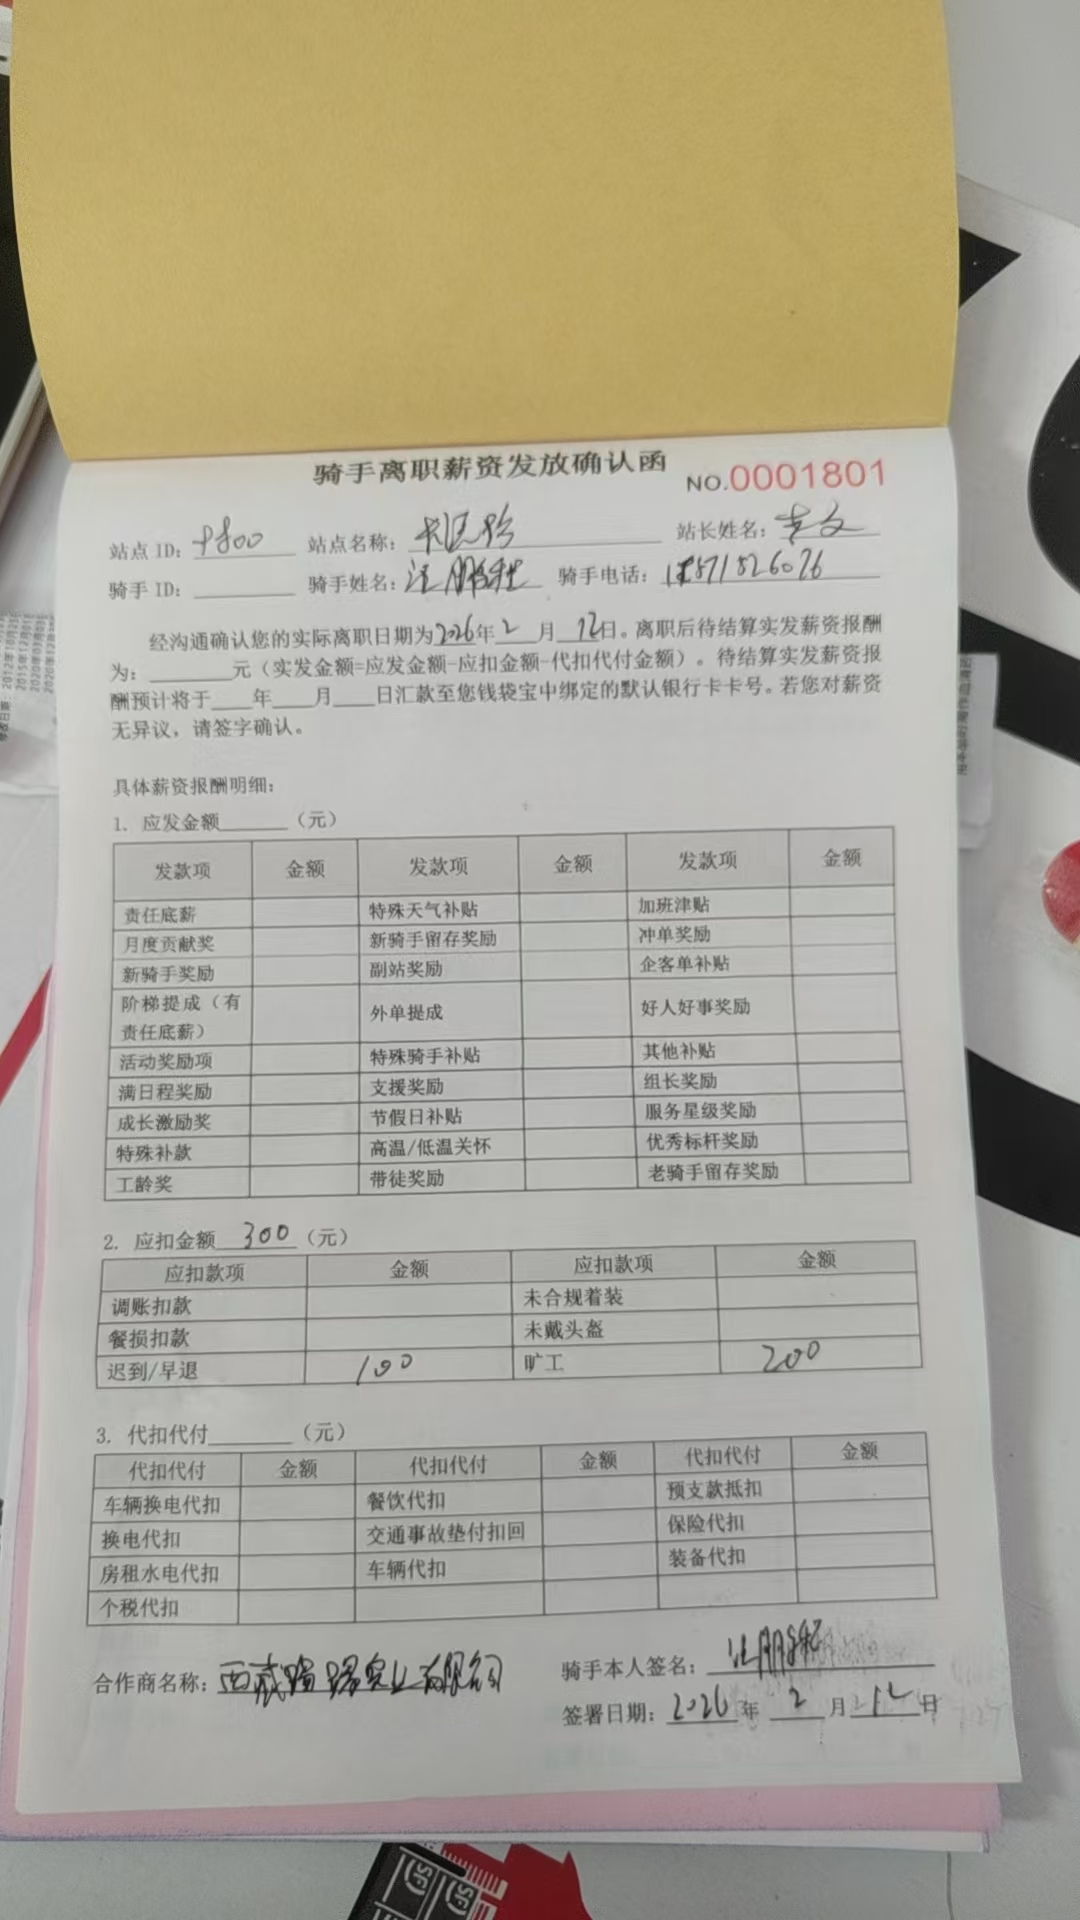 骑手离职薪资发放确认函
NO.0001801
站点 ID: 站点名称: 站长姓名:
骑手 ID: 骑手姓名: 汪鹏程 骑手电话:
经沟通确认您的实际离职日期为2026年2月12日。离职后待结算实发薪资报酬
为:元（实发金额=应发金额-应扣金额-代扣代付金额）。待结算实发薪资报
酬预计将于年月日汇款至您钱袋宝中绑定的默认银行卡卡号。若您对薪资
无异议，请签字确认。
具体薪资报酬明细:
1. 应发金额（元）
发款项 金额 发款项 金额 发款项 金额
责任底薪 特殊天气补贴 加班津贴
月度贡献奖 新骑手留存奖励 冲单奖励
新骑手奖励 副站奖励 企客单补贴
阶梯提成（有
责任底薪） 外单提成 好人好事奖励
活动奖励项 特殊骑手补贴 其他补贴
满日程奖励 支援奖励 组长奖励
成长激励奖 节假日补贴 服务星级奖励
特殊补款 高温/低温关怀 优秀标杆奖励
工龄奖 带徒奖励 老骑手留存奖励
2. 应扣金额 300（元）
应扣款项 金额 应扣款项 金额
调账扣款 未合规着装
餐损扣款 未戴头盔
迟到/早退 100 旷工 200
3. 代扣代付（元）
代扣代付 金额 代扣代付 金额 代扣代付 金额
车辆换电代扣 餐饮代扣 预支款抵扣
换电代扣 交通事故垫付扣回 保险代扣
房租水电代扣 车辆代扣 装备代扣
个税代扣
合作商名称: 西藏 实业有限公司 骑手本人签名: 汪鹏程
签署日期: 2026年 2月 12日